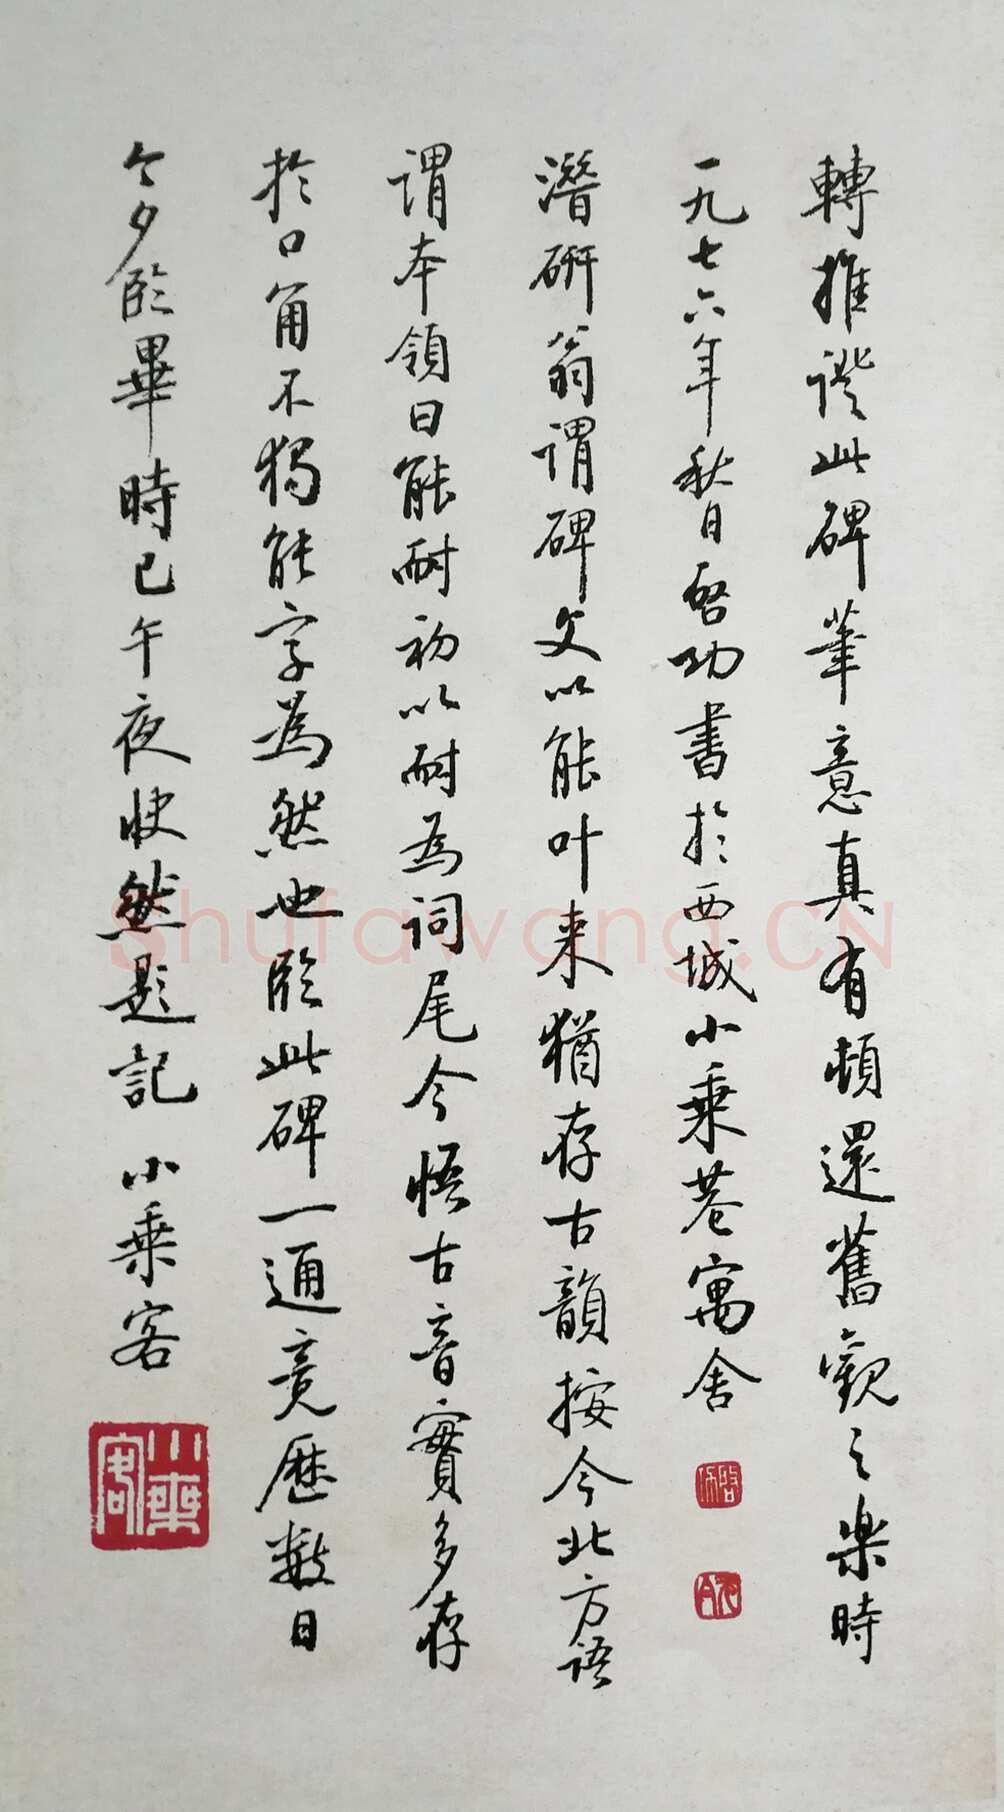 轉推證此碑筆意真有頓還舊觀之樂時
一九七六年秋日啓功書於西城小乘巷寓舍
潛研翁謂碑文以能叶来猶存古韻按今北方語
謂本領曰能耐初以耐為詞尾今悟古音實多存
於口角不獨能字為然也臨此碑一通竟歷數日
今夕臨畢時已午夜快然題記 小乘客
小乘客
Shufawang.CN